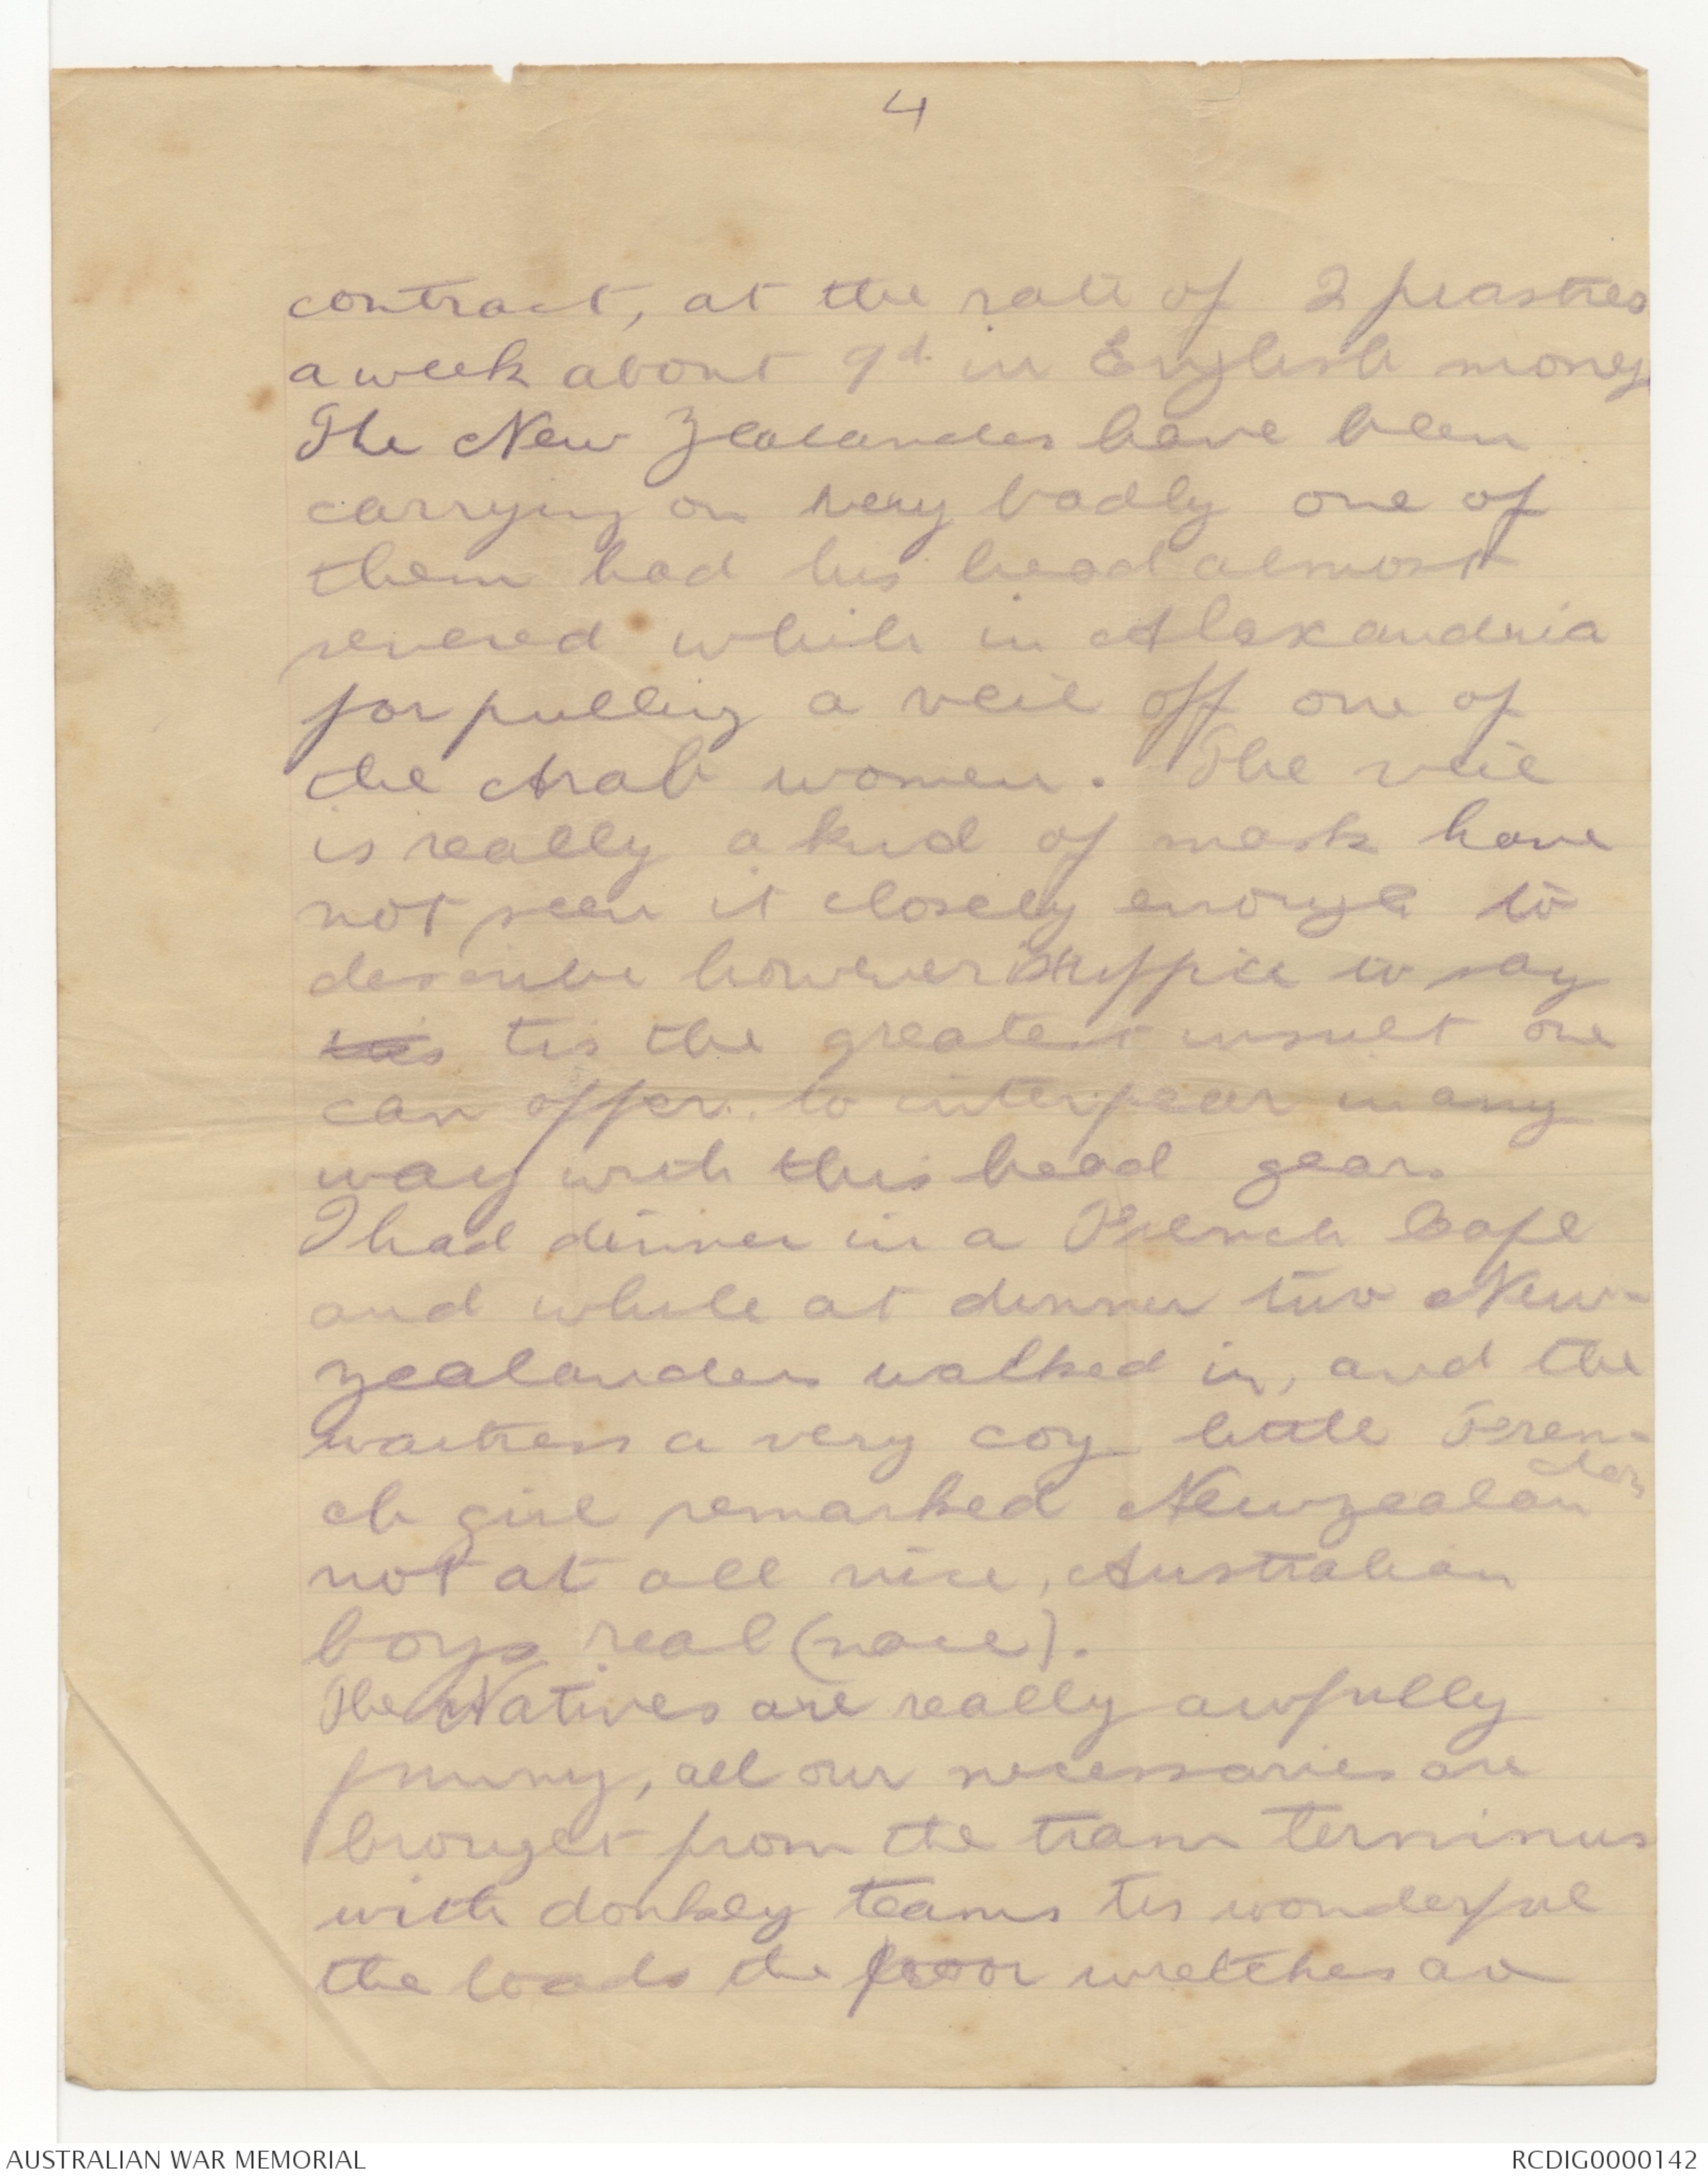 4
contract, at the rate of 2 piastres
a week about 9d. in English money
The New Zealanders have been
carrying on very badly one of
them had his head almost
severed while in Alexandria
for pulling a veil off one of
the Arab women. The veil
is really a kind of mask have
not seen it closely enough to
describe however suffice to say
tis the greatest insult one
can offer. to interfear in any
way with this head gear.
I had dinner in a French Cafe
and while at dinner two New-
zealanders walked in, and the
waitress a very coy little Fren-
ch girl remarked Newzealanders
not at all nice, Australian
boys real (nace).
The Natives are really awfully
funny, all our necessaries are
brought from the tram terminus
with donkey teams tis wonderful
the loads the poor wretches
AUSTRALIAN WAR MEMORIAL
RCDIG0000142